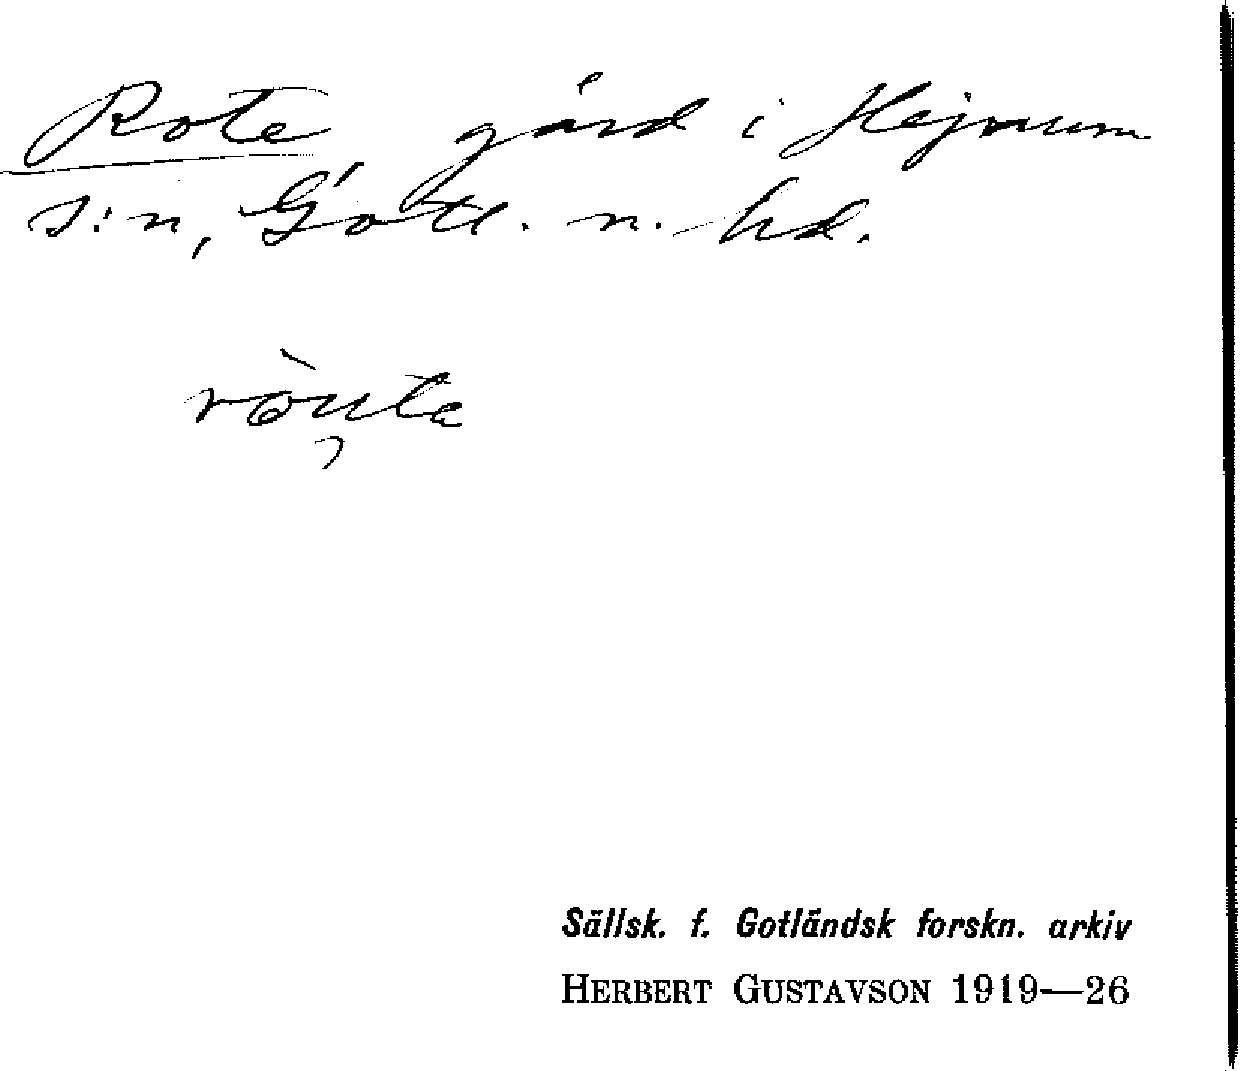 Rote, gård i Hejnum
s:n, Gotl. n. hd.
ròu̡te
Sällsk. f. Gotländsk forskn. arkiv
HERBERT GUSTAVSON 1919—26